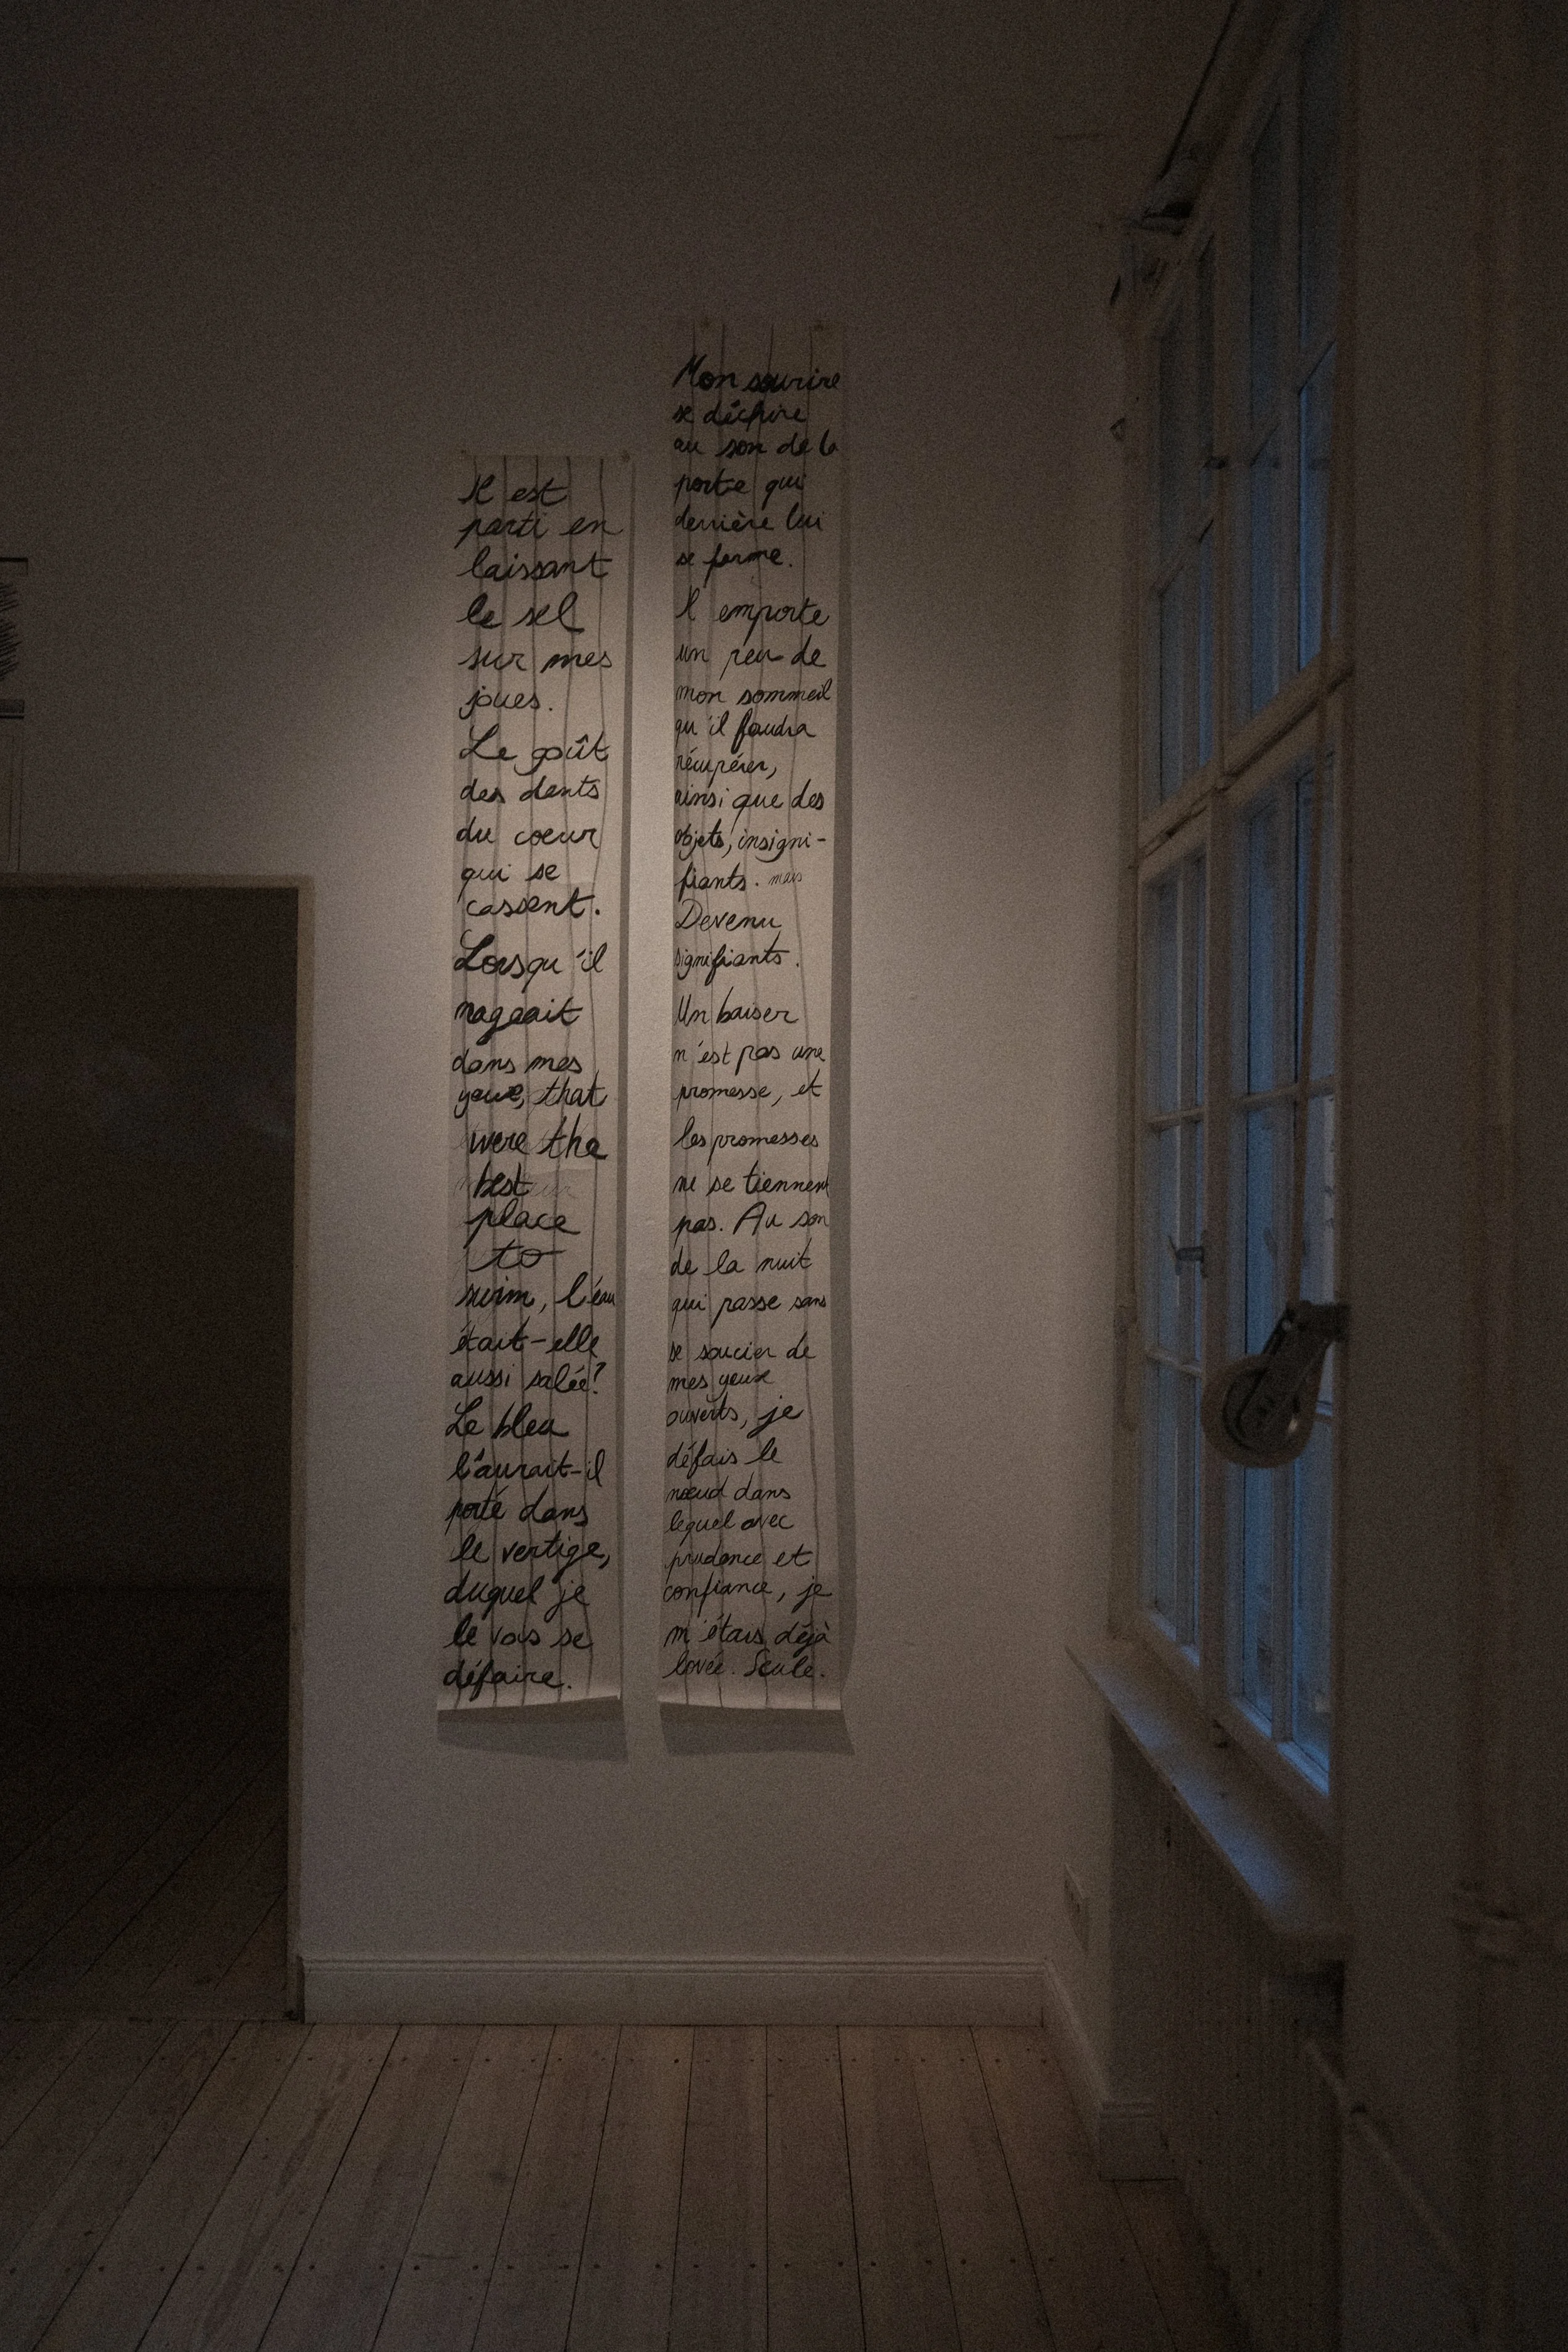 Il est
parti en
laissant
le sel
sur mes
joues.
Le goût
des dents
du coeur
qui se
cassent.
Lorsqu'il
nageait
dans mes
yeux, that
were the
best
place
to
swim, l'eau
était-elle
aussi salée?
Le bleu
l'aurait-il
porté dans
le vertige,
duquel je
le vois se
défaire.
Mon sourire
se déchire
au son de la
porte qui
derrière lui
se ferme.
Il emporte
un peu de
mon sommeil
qu'il faudra
récupérer,
ainsi que des
objets, insigni-
fiants. mais
Devenu
signifiants.
Un baiser
n'est pas une
promesse, et
les promesses
ne se tiennent
pas. Au son
de la nuit
qui passe sans
se soucier de
mes yeux
ouverts, je
défais le
nœud dans
lequel avec
prudence et
confiance, je
m'étais déjà
lovée. Seule.